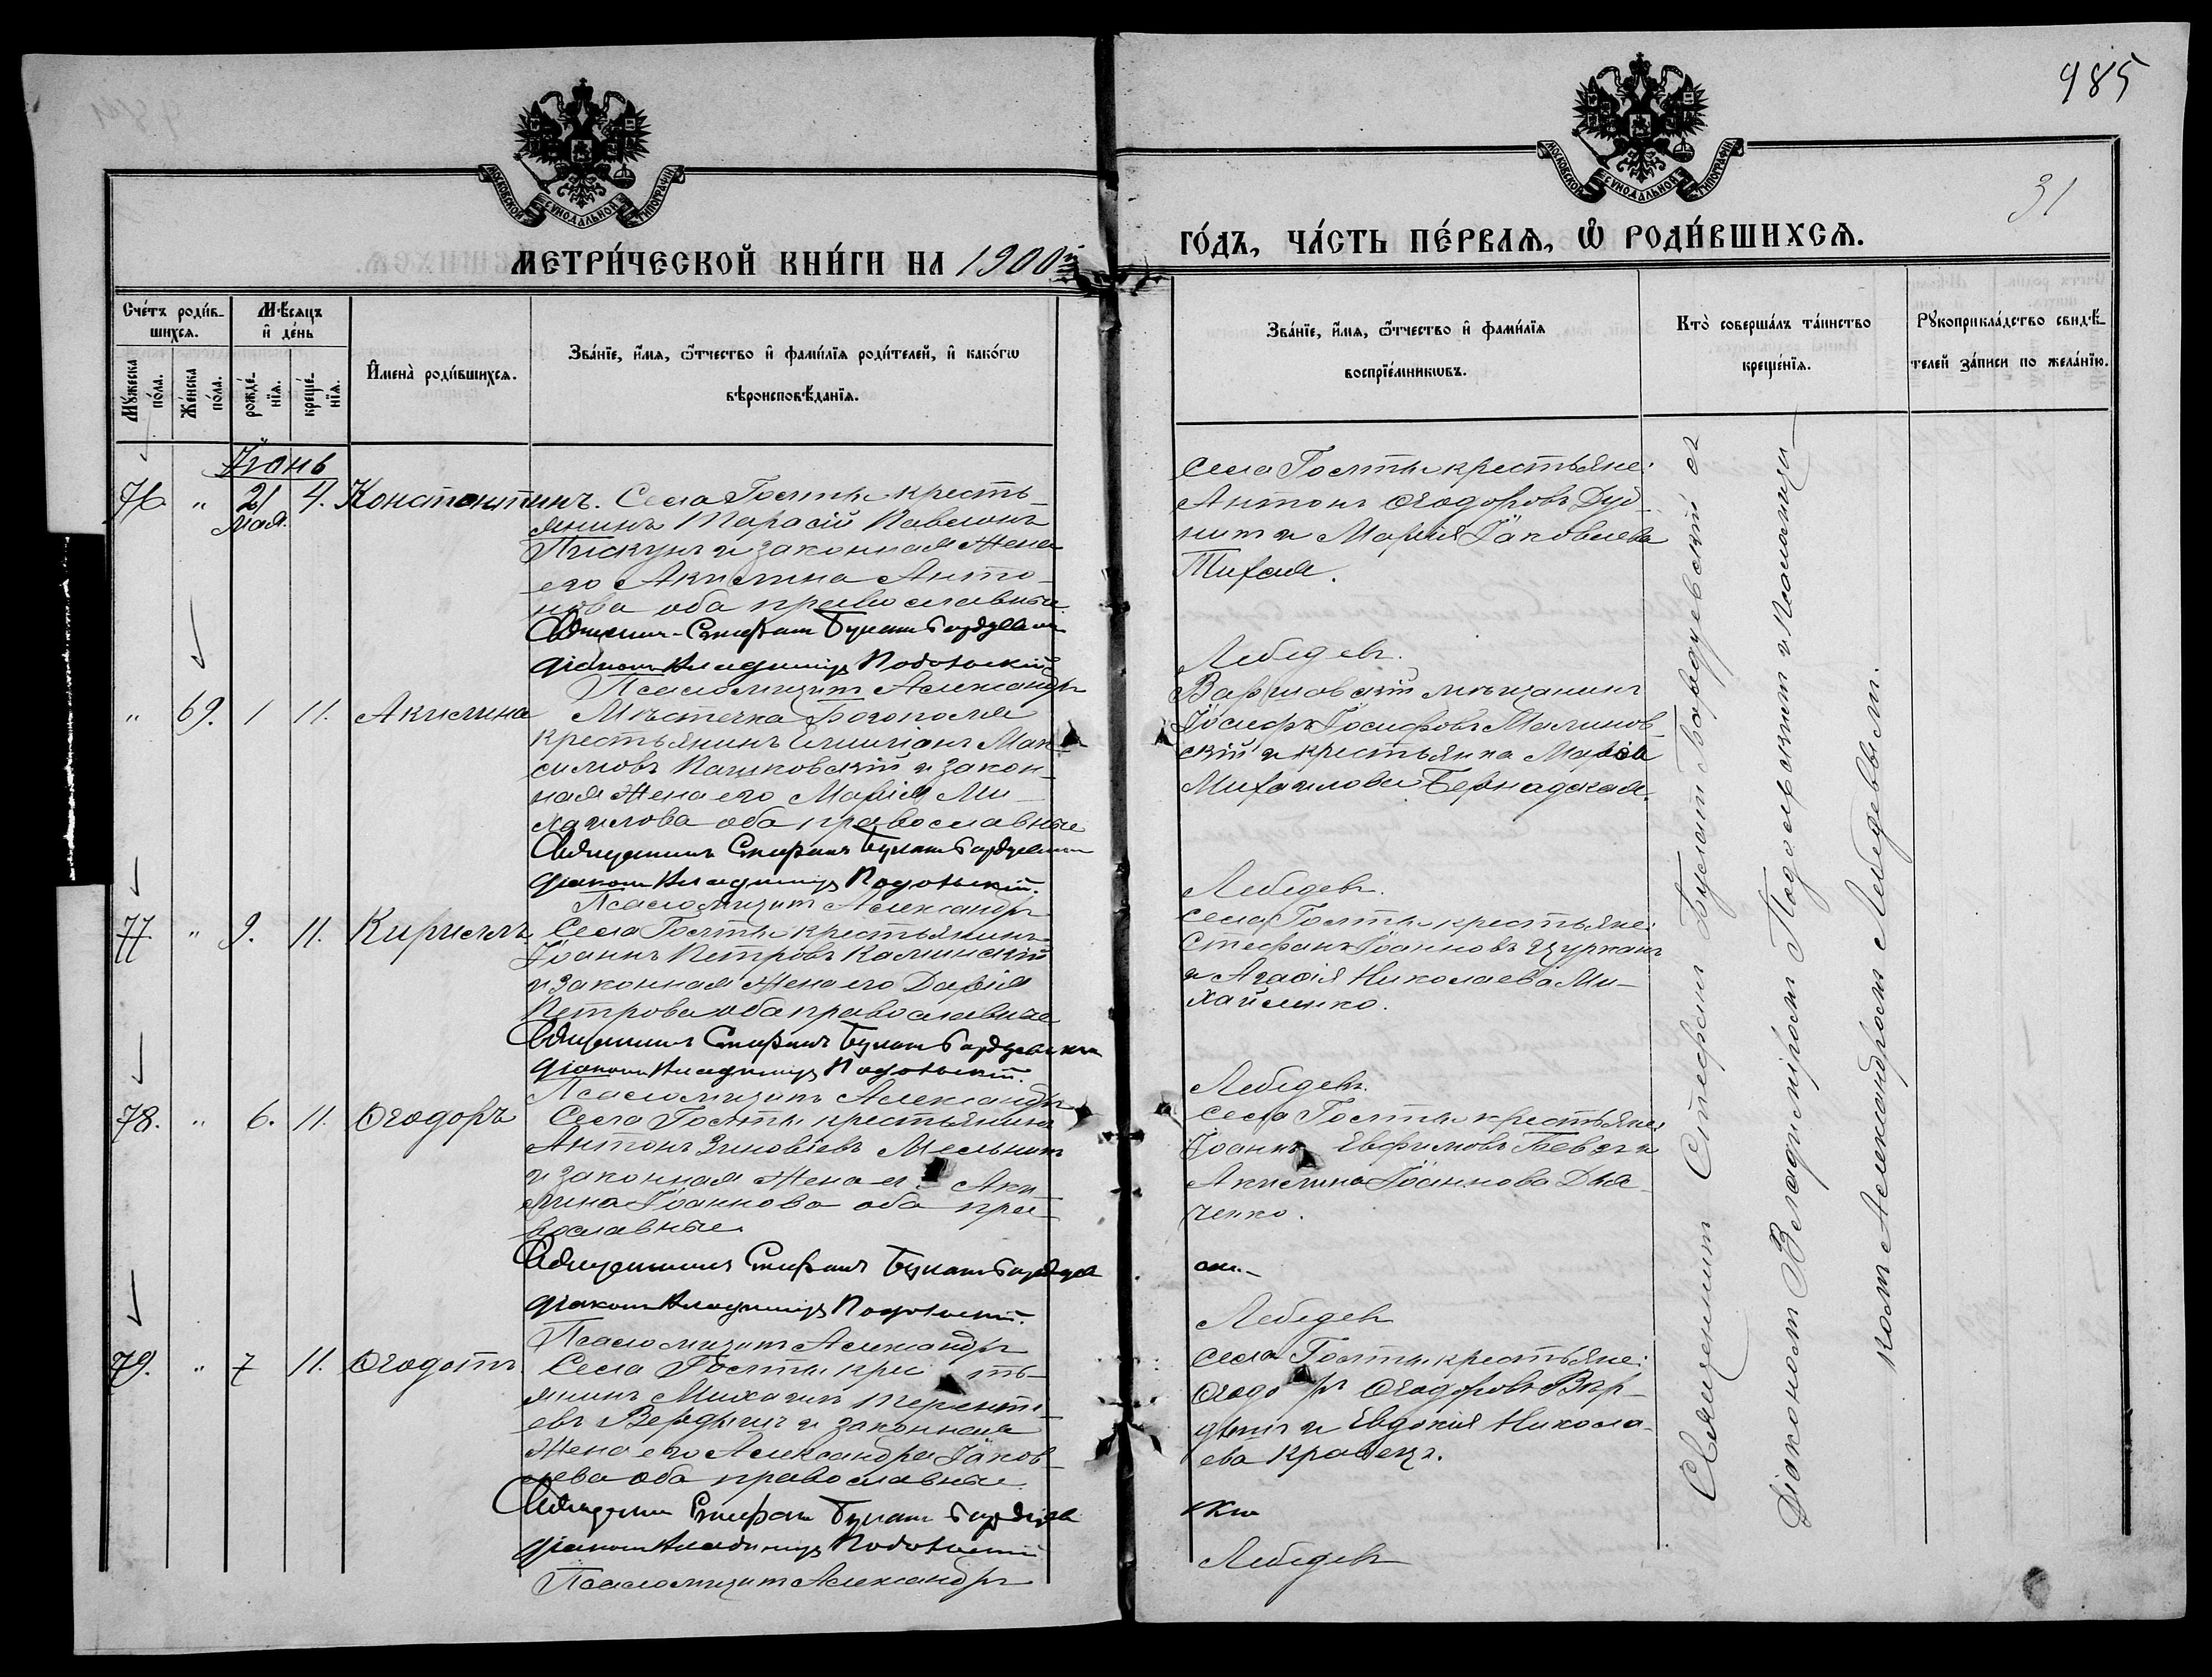 985
31
МОСКОВСКОЙ СѴНОДАЛЬНОЙ ТИПОГРАФІИ
МОСКОВСКОЙ СѴНОДАЛЬНОЙ ТИПОГРАФІИ
МЕТРИ́ЧЕСКОЙ КНИ́ГИ НА 1900й
ГО́ДЪ, ЧА́СТЬ ПЕ́РВАѦ, Ѽ РОДИ́ВШИХСѦ.
Сче́тъ роди́в-
шихсѧ.
Мѣ́сѧцъ
и҆ де́нь
Мꙋ́жеска
по́ла.
Же́нска
по́ла.
рожде́-
нїѧ.
креще́-
нїѧ.
И҆мена̀ роди́вшихсѧ.
Зва́нїе, и҆́мѧ, ѻ҆́тчество и҆ фами́лїѧ роди́телей, и҆ како́гѡ
вѣроисповѣ́данїѧ.
Зва́нїе, и҆́мѧ, ѻ҆́тчество и҆ фами́лїѧ
воспрїе́мникѡвъ.
Кто̀ соверша́лъ та́инство
креще́нїѧ.
Рꙋкоприкла́дство свидѣ́-
телей за́писи по жела́нїю.
Іюнь
76 " 21 Мая. 4. Константинъ. Села Голты кресть-
янинъ Тарасій Павловъ
Пискунъ и законная жена
его Акилина Анто-
нова оба православные
Священникъ Стефанъ Булатъ Бордуевскій
діаконъ Владиміръ Подольскій
Псаломщикъ Александръ
Села Голты крестьяне:
Антонъ Ѳеодоровъ Дуд-
никъ и Марія Іаковлева
Тихая.
Лебедевъ.
" 69. 1 11. Акилина Мѣстечка Богополя
крестьянинъ Емиліанъ Мак-
симовъ Пашковскій и закон-
ная жена его Марія Ми-
хаилова оба православные
Священникъ Стефанъ Булатъ Бордуевскій
діаконъ Владиміръ Подольскій.
Псаломщикъ Александръ
Варшавскій мѣщанинъ
Іосифъ Іосифовъ Малинов-
скій и крестьянка Марія
Михаилова Бернадская.
Лебедевъ.
77 " 9. 11. Кириллъ Села Голты крестьянинъ
Іоаннъ Петровъ Калинскій
и законная жена его Дарія
Петрова оба православные
Священникъ Стефанъ Булатъ Бордуевскій
діаконъ Владиміръ Подольскій.
Псаломщикъ Александръ
Села Голты крестьяне:
Стефанъ Іоанновъ Цурканъ
и Агаѳія Николаева Ми-
хайленко.
Лебедевъ.
78. " 6. 11. Ѳеодоръ Села Голты крестьянинъ
Антонъ Зиновіевъ Мельникъ
и законная жена его Аки-
лина Іоаннова оба пра-
вославные
Священникъ Стефанъ Булатъ Бордуев
діаконъ Владиміръ Подольскій.
Псаломщикъ Александръ
Села Голты крестьяне:
Іоаннъ Евфимовъ Бевзъ и
Акилина Іоаннова Дья-
ченко.
скій
Лебедевъ
79. " 7 11. Ѳеодотъ Села Голты кресть-
янинъ Михаилъ Терентi-
евъ Вередичъ и законная
жена его Александра Іаков-
лева оба православные.
Священникъ Стефанъ Булатъ Бордуев
діаконъ Владиміръ Подольскій
Псаломщикъ Александръ
Села Голты крестьяне:
Ѳеодоръ Ѳеодоровъ
и Евдокія Никола-
ева Кравецъ.
скій
Лебедевъ
Священникъ Стефанъ Булатъ Бордуевскій съ
діакономъ Владиміромъ Подольскимъ и Псаломщи-
комъ Александромъ Лебедевымъ.